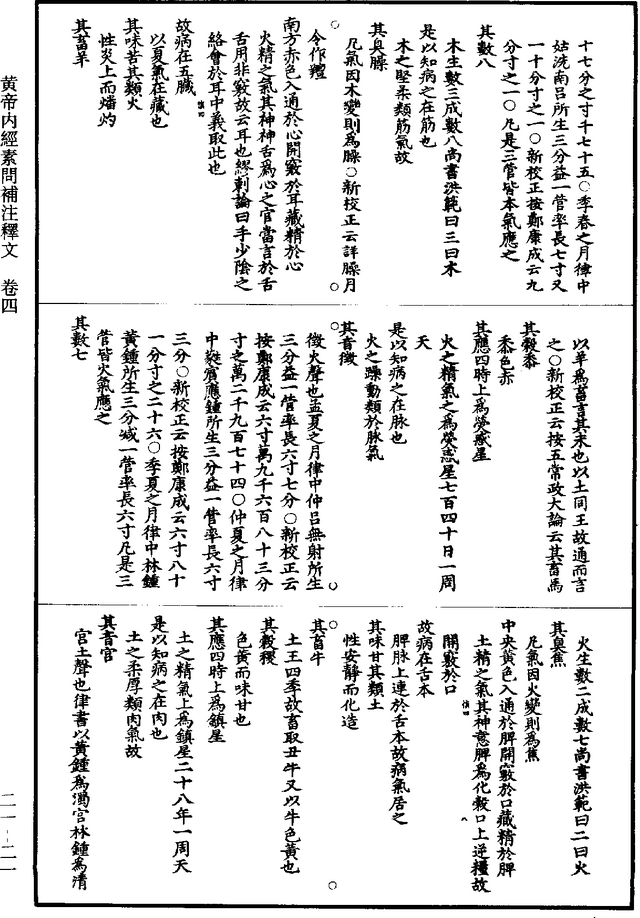 黄帝内經素問補注釋文　卷四
十七分之寸千七十五○季春之月律中
姑洗南呂所生三分益一管率長七寸又
一十分寸之一○新校正按鄭康成云九
分寸之一○凡是三管皆木氣應之
其數八
木生數三成數八尚書洪範曰三曰木
是以知病之在筋也
木之堅柔類筋氣故
其臭臊
凡氣因木變則爲臊○新校正云詳臊月
令作羶
南方赤色入通於心開竅於耳藏精於心
火精之氣其神神舌爲心之官當言於舌
舌用非竅故云耳也繆刺論曰手少陰之
絡會於耳中義取此也
故病在五臟
以夏氣在藏也
其味苦其類火
性炎上而燔灼
其畜羊
以羊爲畜言其未也以土同王故通而言
之○新校正云按五常政大論云其畜馬
其穀黍
黍色赤
其應四時上爲熒惑星
火之精氣之爲熒惑星七百四十日一周
天
是以知病之在脉也
火之躁動類於脉氣
其音徵
徵火聲也孟夏之月律中仲呂無射所生
三分益一管率長六寸七分○新校正云
按鄭康成云六寸萬九千六百八十三分
寸之萬二千九百七十四○仲夏之月律
中蕤賓應鍾所生三分益一管率長六寸
三分○新校正云按鄭康成云六寸八十
一分寸之二十六○季夏之月律中林鍾
黃鍾所生三分減一管率長六寸凡是三
管皆火氣應之
其數七
火生數二成數七尚書洪範曰二曰火
其臭焦
凡氣因火變則爲焦
中央黃色入通於脾開竅於口藏精於脾
土精之氣其神意脾爲化穀口上逆糧故
開竅於口
故病在舌本
脾脉上連於舌本故病氣居之
其味甘其類土
性安靜而化造
其畜牛
土王四季故畜取丑牛又以牛色黃也
其穀稷
色黃而味甘也
其應四時上爲鎮星
土之精氣上爲鎮星二十八年一周天
是以知病之在肉也
土之柔厚類肉氣故
其音宮
宮土聲也律書以黃鍾爲濁宮林鍾爲清
二一-二一